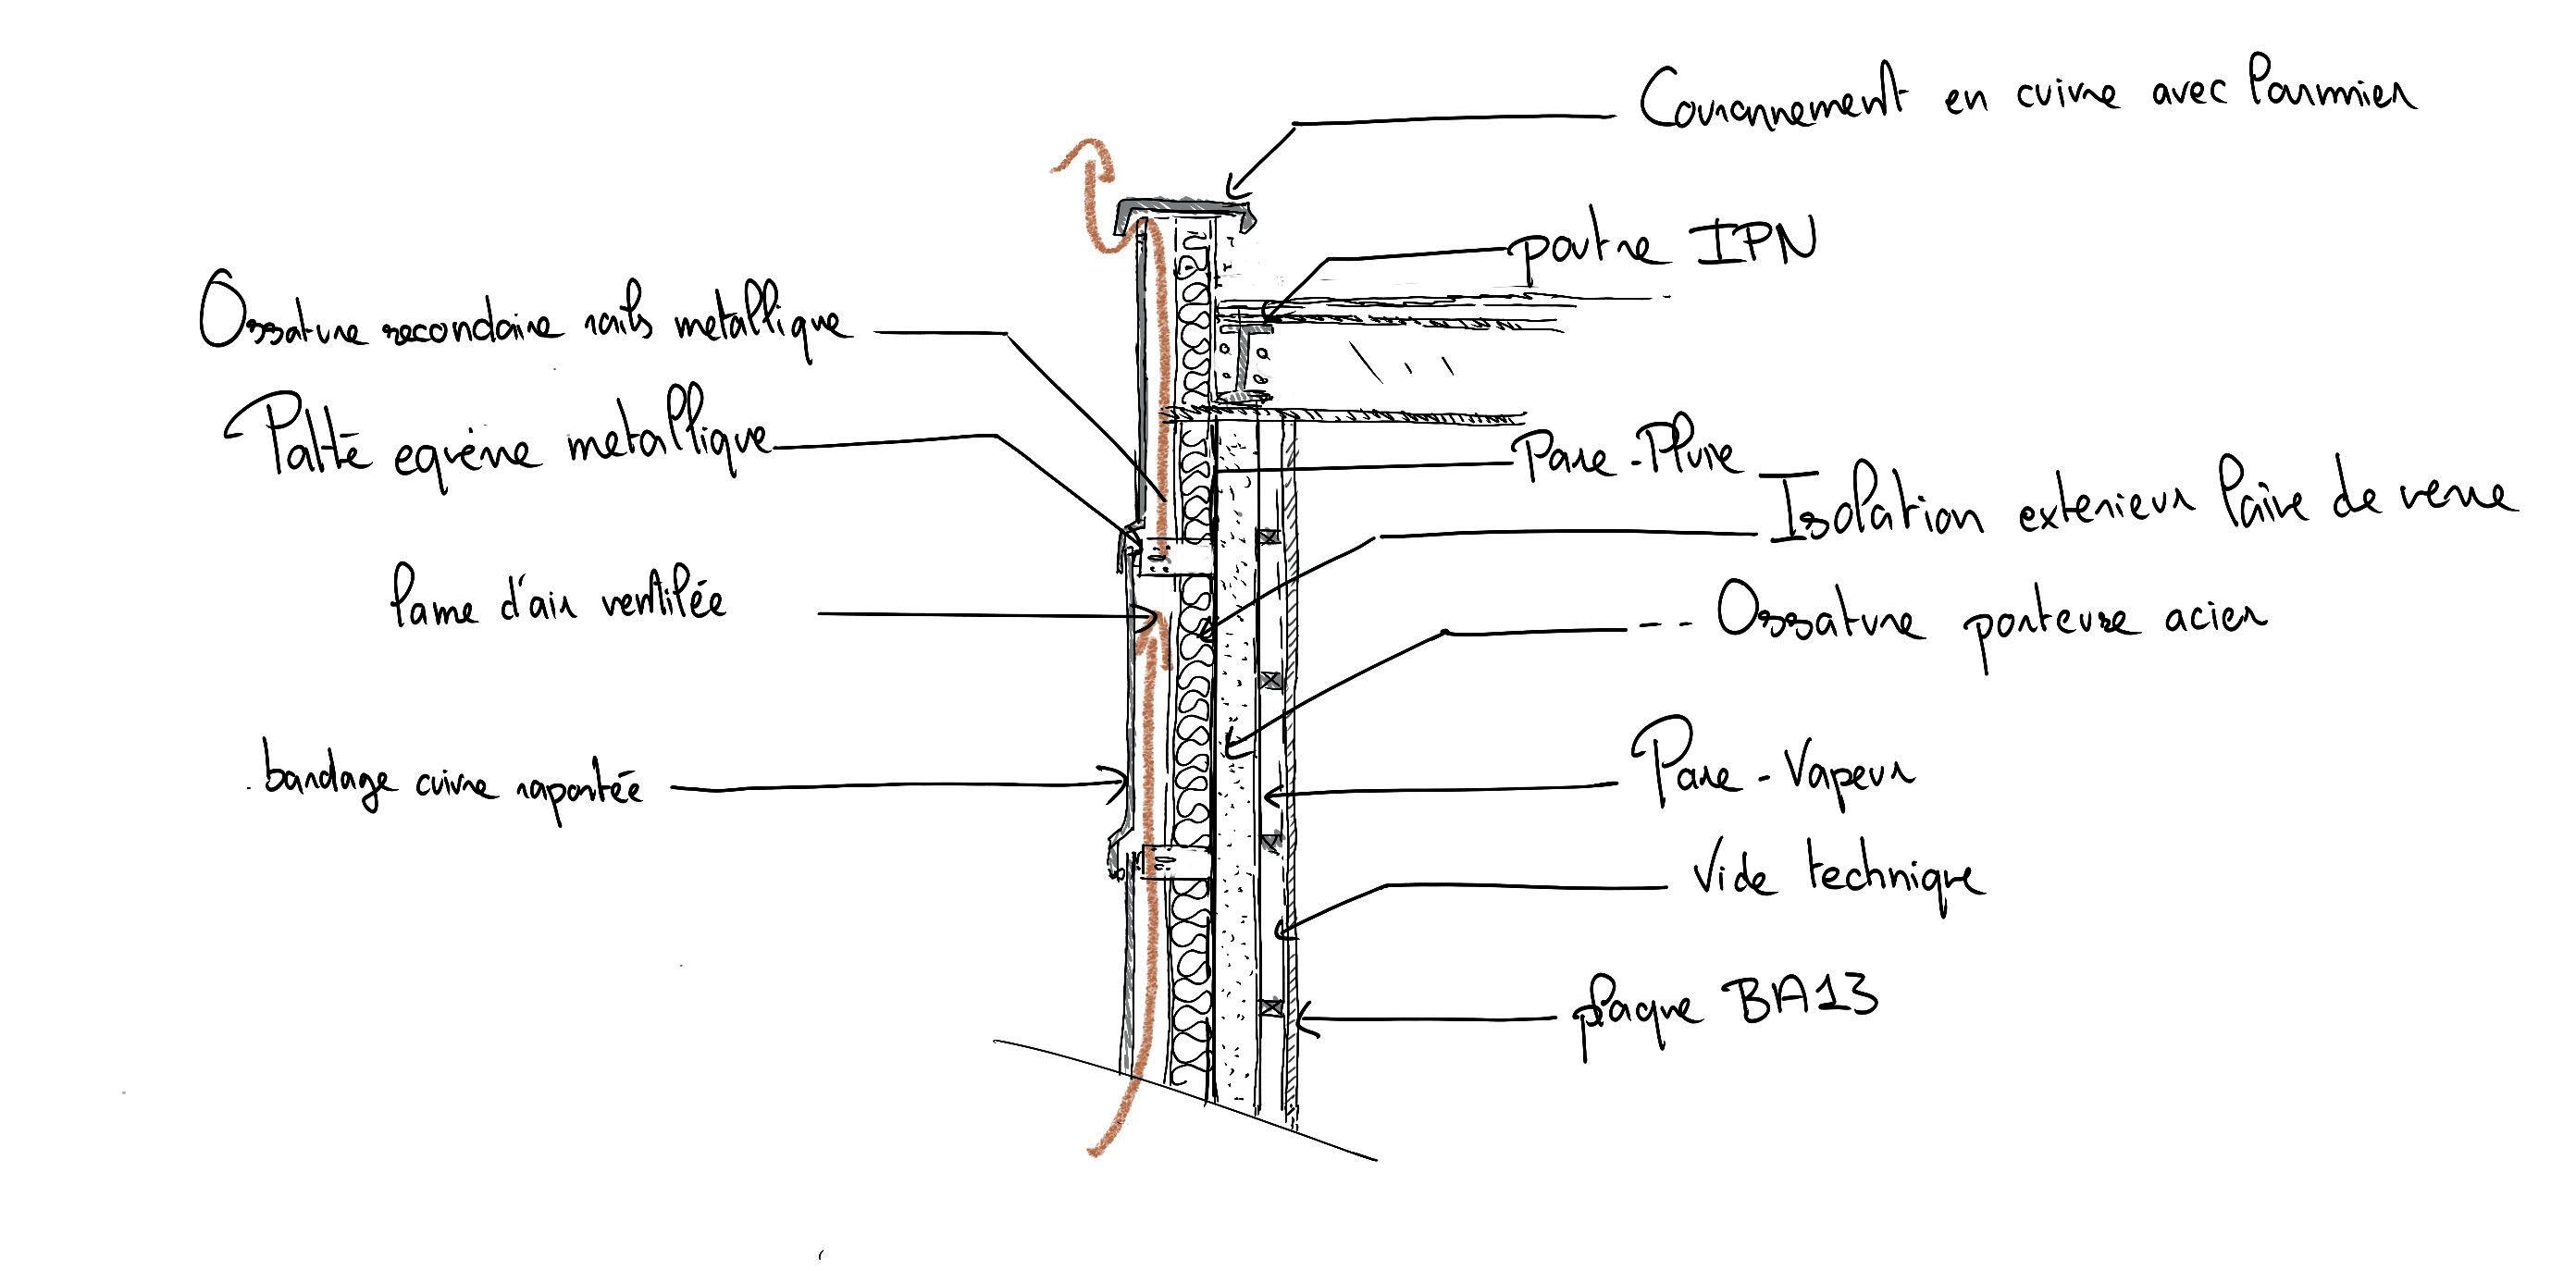 Couronnement en cuivre avec larmier
poutre IPN
Ossature secondaire rails metallique
Patte equerre metallique
Pare-Pluie
Isolation exterieur laine de verre
lame d'air ventilée
Ossature porteuse acier
bardage cuivre raportée
Pare-Vapeur
Vide technique
plaque BA13